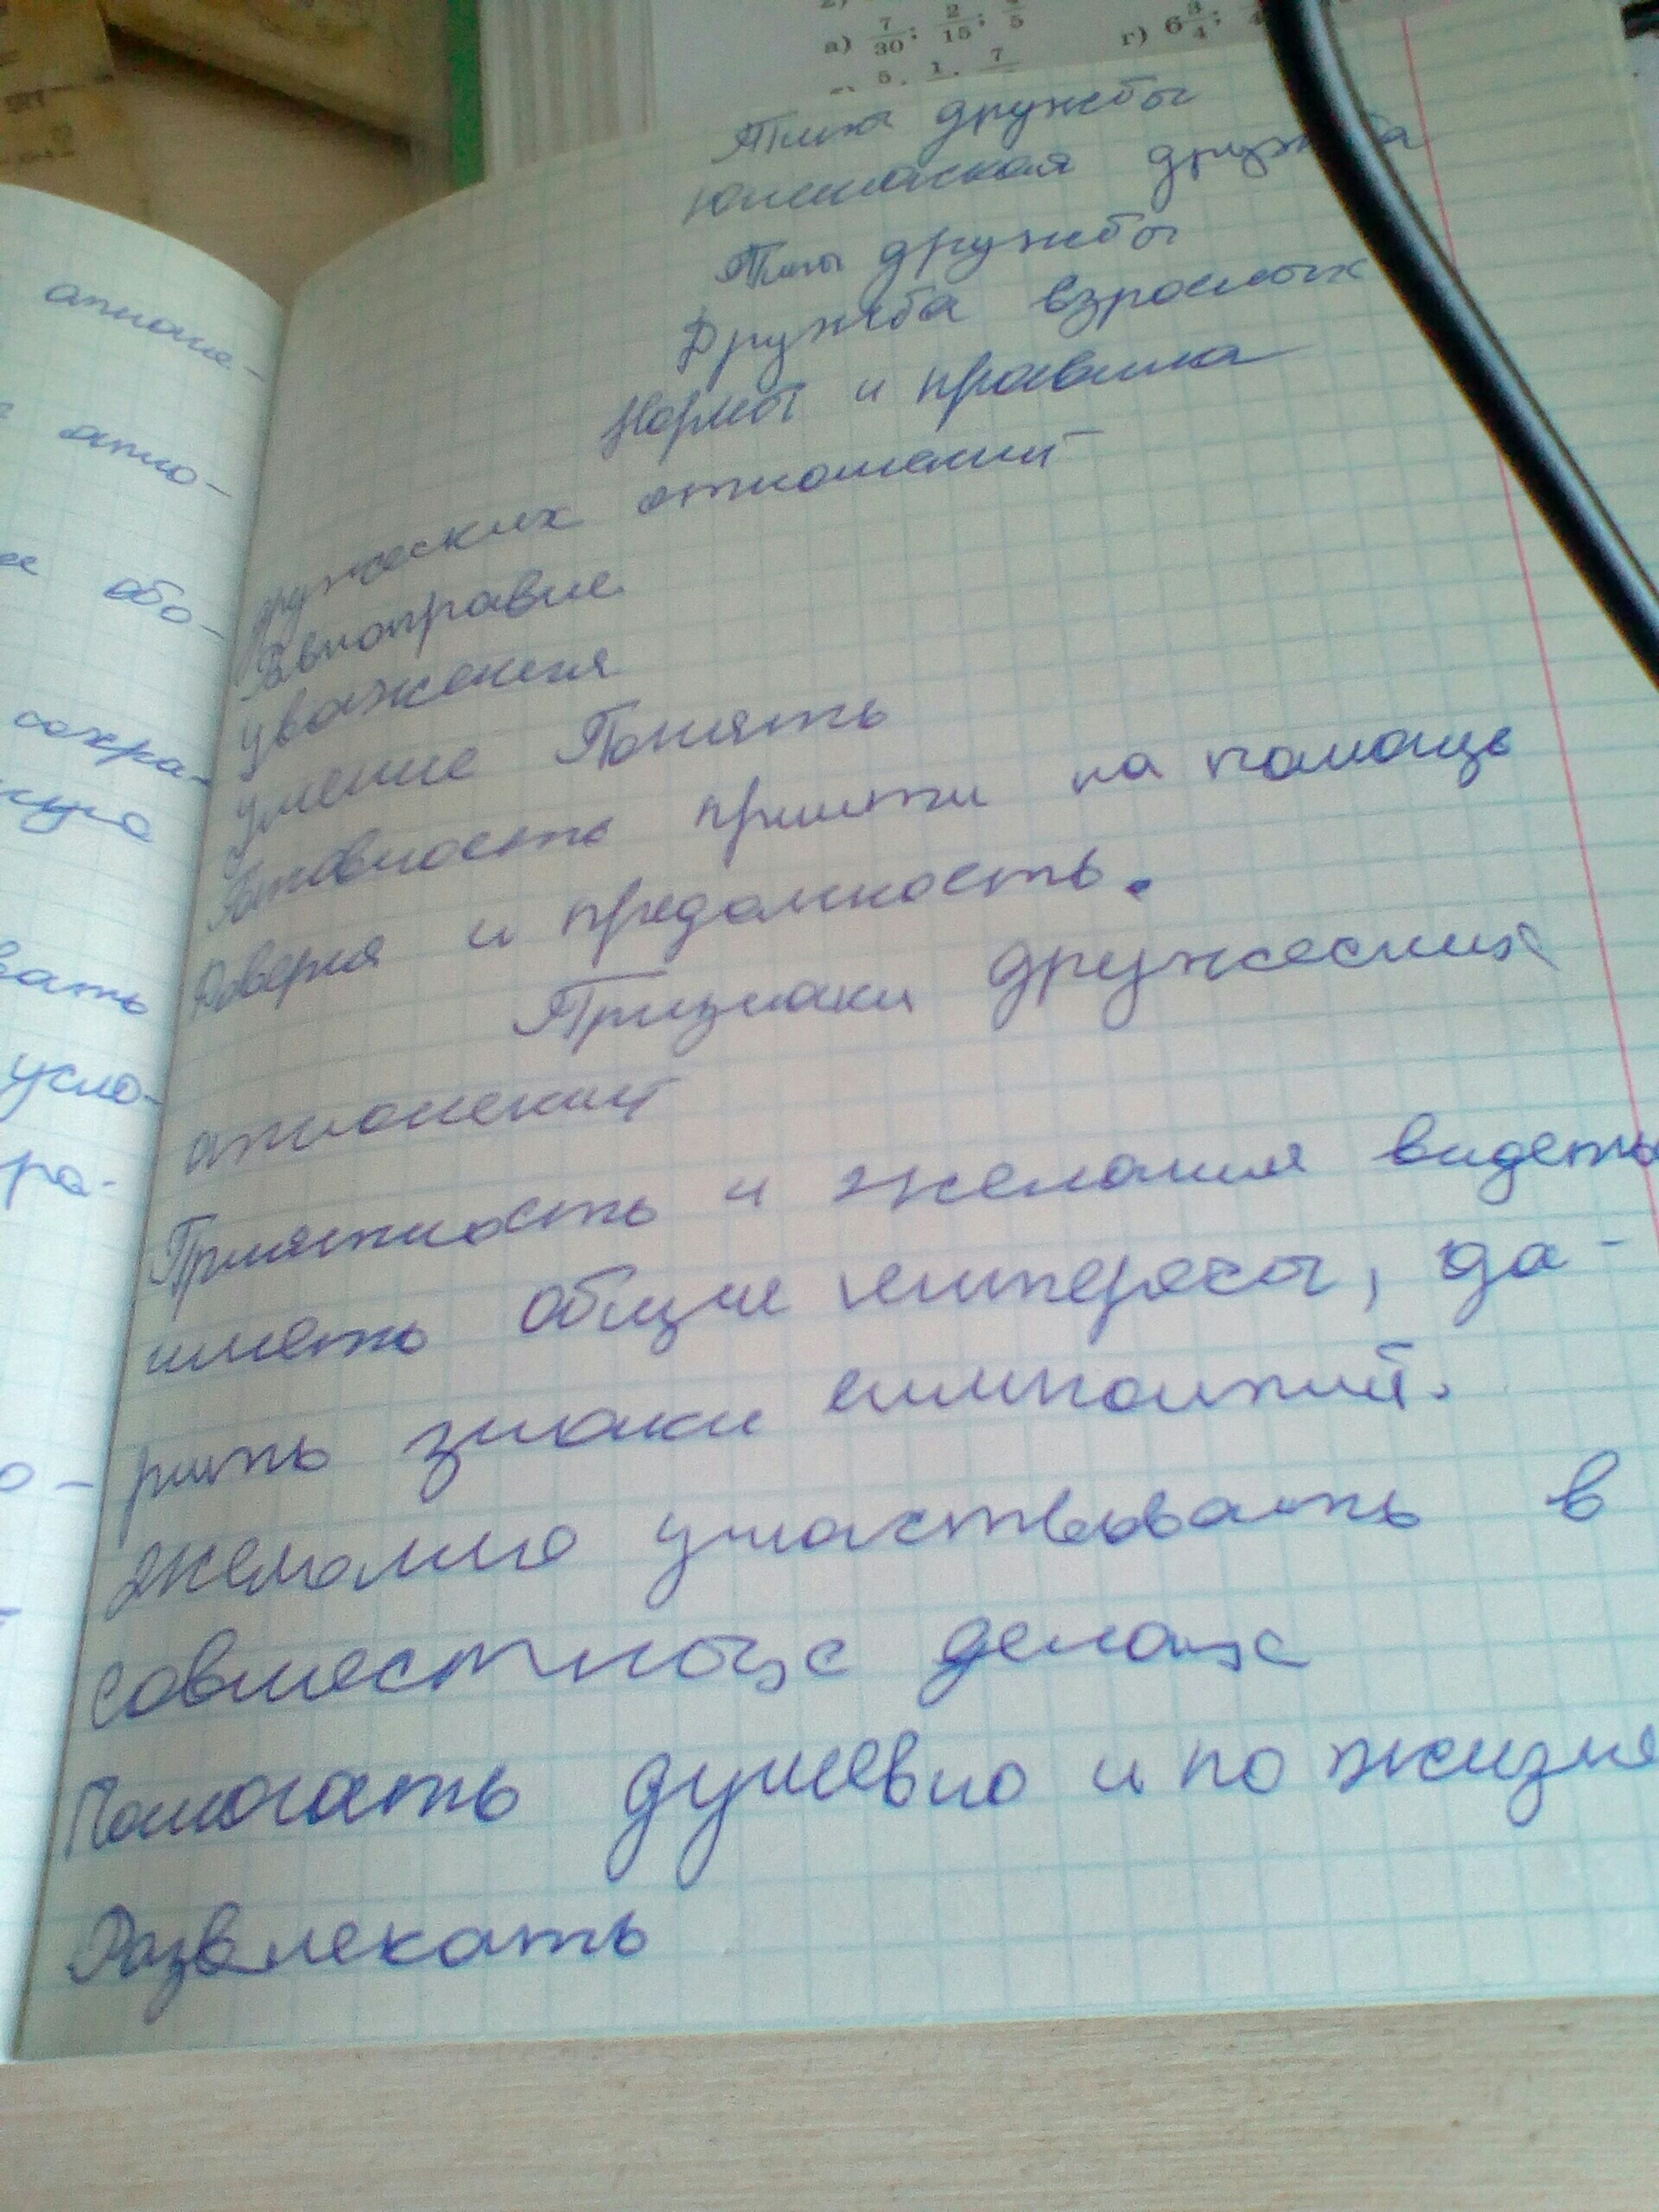 а) 7/30; 2/15; 4/5
г) 6 3/4;
5. 1. 7
Типы дружбы
Юношеская дружба
Типы дружбы
Дружба взрослых
Нормы и правила
дружеских отношений
Равноправие
уважения
умение Понять
Готовность прийти на помощь
Доверия и преданность.
Признаки дружеских
отношений
Приятность и желания видеть
иметь общие интересы, да-
рить знаки симпатий.
желание участвовать в
совместных делах
Помогать душевно и по жизни
Развлекать
отноше-
отно-
обо-
сохра-
вать
усло-
ра-
о-